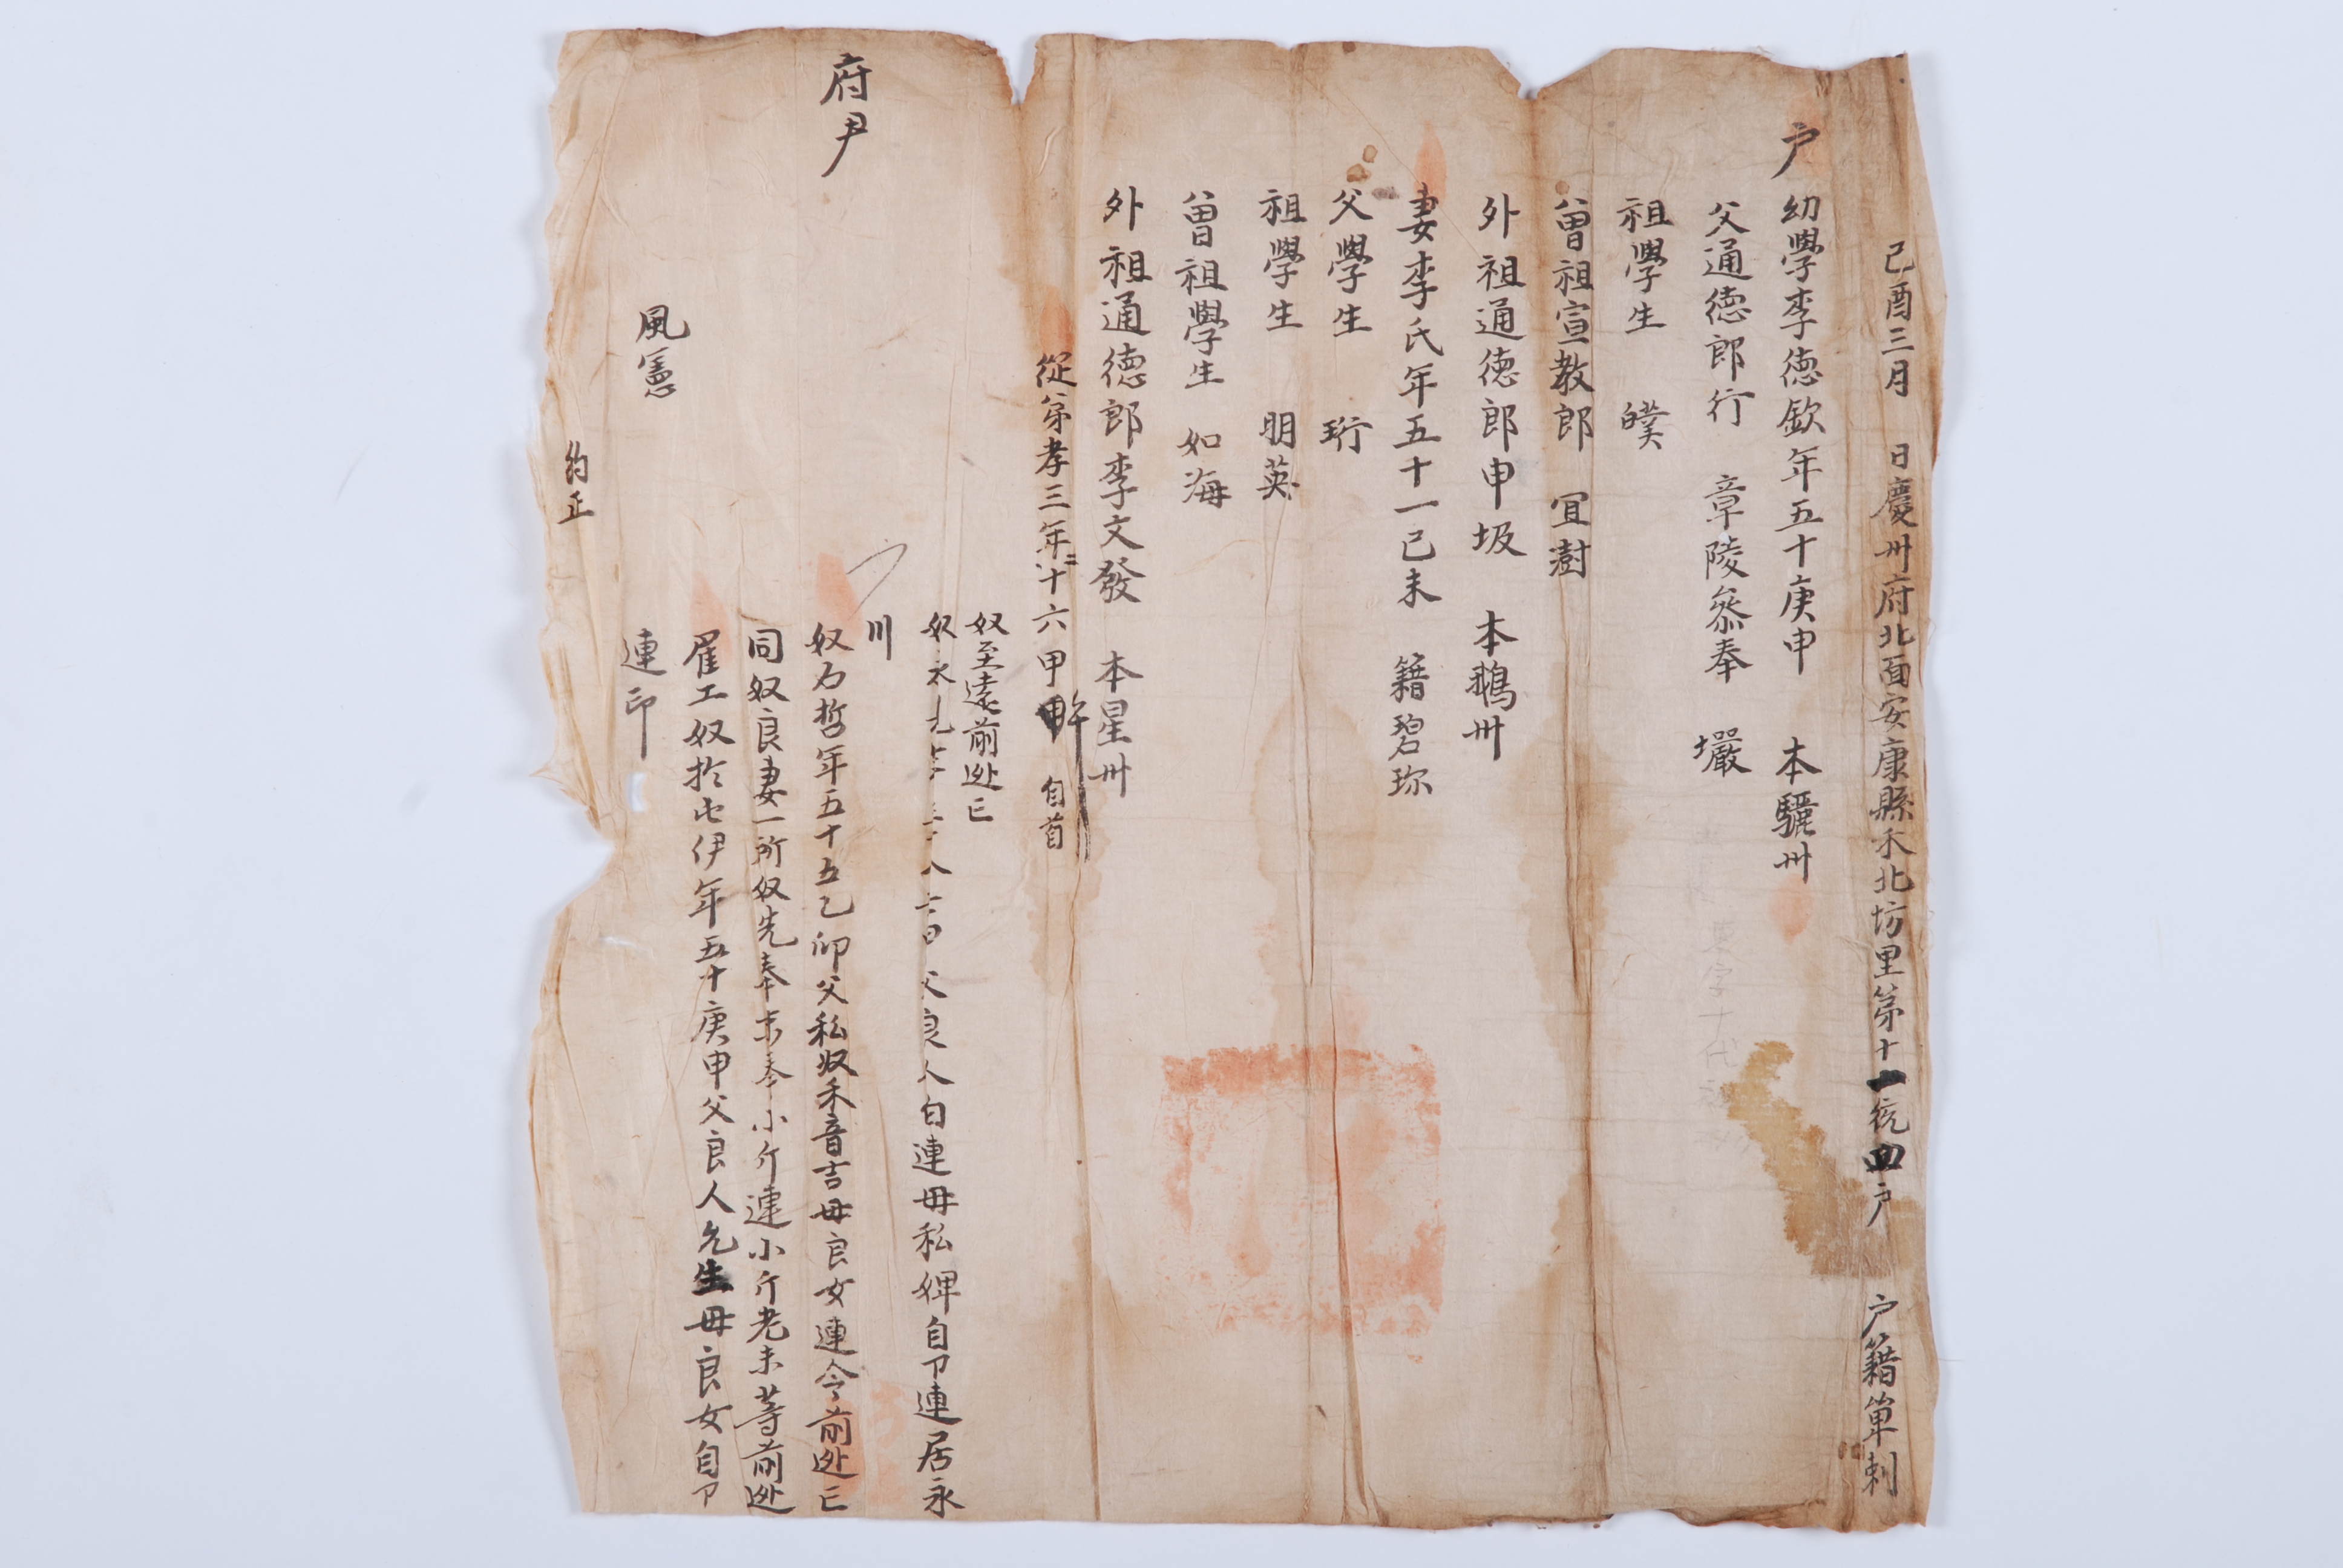 己酉三月 日慶州府北面安康縣禾北坊里第十一統四戶 戶籍單刺
戶
幼學李德欽年五十庚申 本驪州
父通德郎行 章陵參奉 壧
祖學生 皥
曾祖宣教郎 宜澍
外祖通德郎申圾 本鵝州
妻李氏年五十一己未 籍碧珍
父學生 珩
祖學生 明英
曾祖學生 如海
外祖通德郎李文發 本星州
從弟孝三年二十六甲 自首
奴至遠前逃亡
奴 父良人自連母私婢自卩連居永
川
奴乃哲年五十五乙卯父私奴禾音吉母良女連今前逃亡
同奴良妻一所奴先奉 小斤連小斤老未等前逃
雇工奴於屯伊年五十庚申父良人 生母良女自卩
連印
府尹
風憲
約正